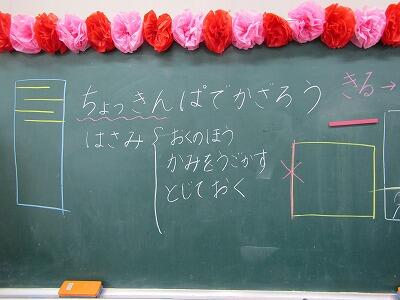 ちょっきんぱでかざろう
きる→
はさみ
おくのほう
かみをうごかす
とじておく